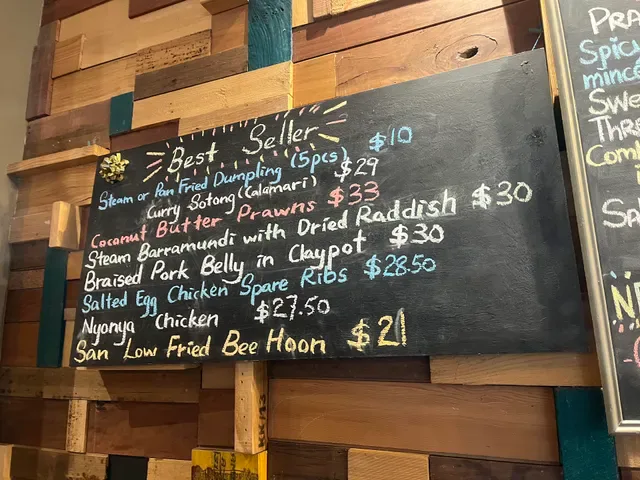 Best Seller
Steam or Pan Fried Dumpling (5pcs) $10
Curry Sotong (Calamari) $29
Coconut Butter Prawns $33
Steam Barramundi with Dried Raddish $30
Braised Pork Belly in Claypot $30
Salted Egg Chicken Spare Ribs $28.50
Nyonya Chicken $27.50
San Low Fried Bee Hoon $21